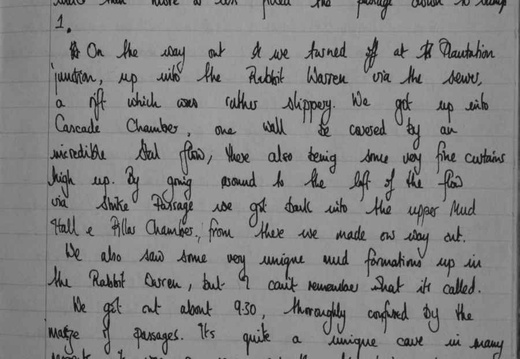 more the passage down to sump
1.
On the way out we turned off at Plantation
junction, up into the Rabbit Warren via the sewer,
a rift which was rather slippery. We got up into
Cascade Chamber, one wall covered by an
incredible stal flow, there also being some very fine curtains
high up. By going around to the left of the flow
via Strike Passage we got back into the upper Mud
Hall & Pillar Chamber, from there we made our way out.
We also saw some very unique mud formations up in
the Rabbit Warren, but I can't remember what its called.
We got out about 9.30, thoroughly confused by the
maze of passages. Its quite a unique cave in many